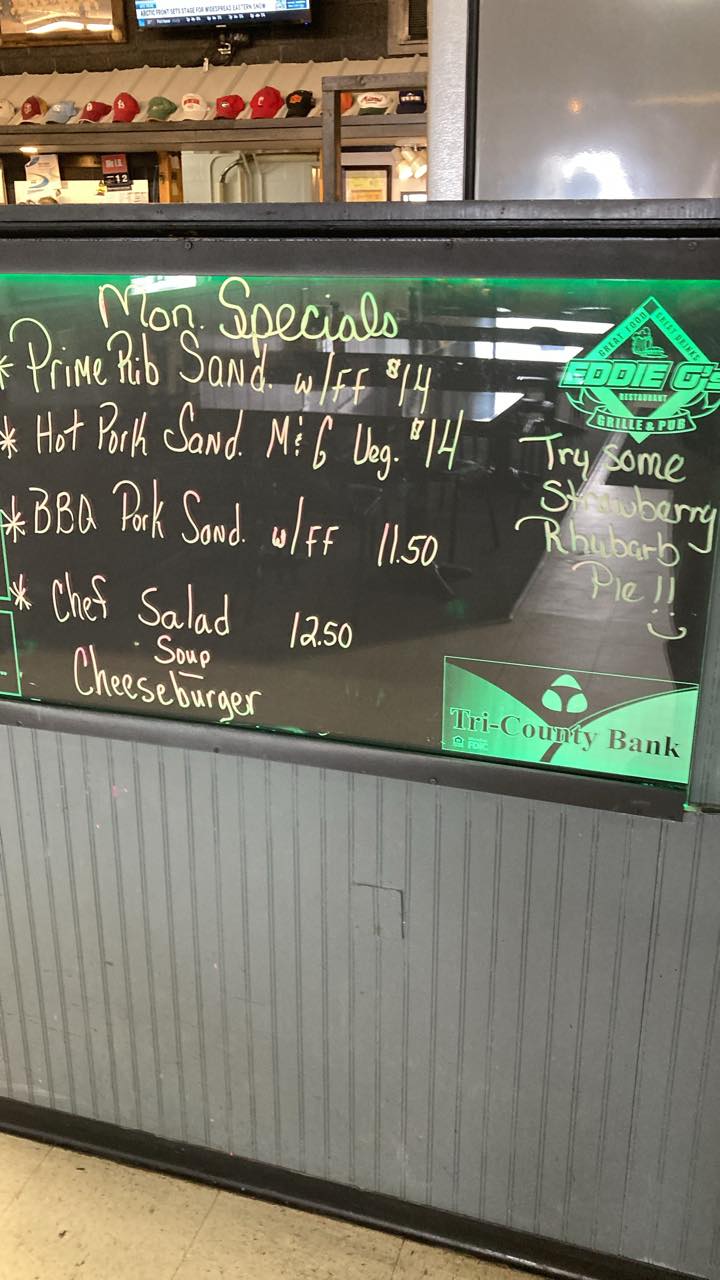 ARCTIC FRONT SETS STAGE FOR WIDESPREAD EASTERN SNOW
12
Mon. Specials
* Prime Rib Sand. w/FF $14
* Hot Pork Sand. M&G Veg. $14
* BBQ Pork Sand. w/FF 11.50
* Chef Salad 12.50
Soup
Cheeseburger
GREAT FOOD GREAT DRINKS
EDDIE G's
RESTAURANT
GRILLE & PUB
Try some
Strawberry
Rhubarb
Pie!!
Tri-County Bank
FDIC